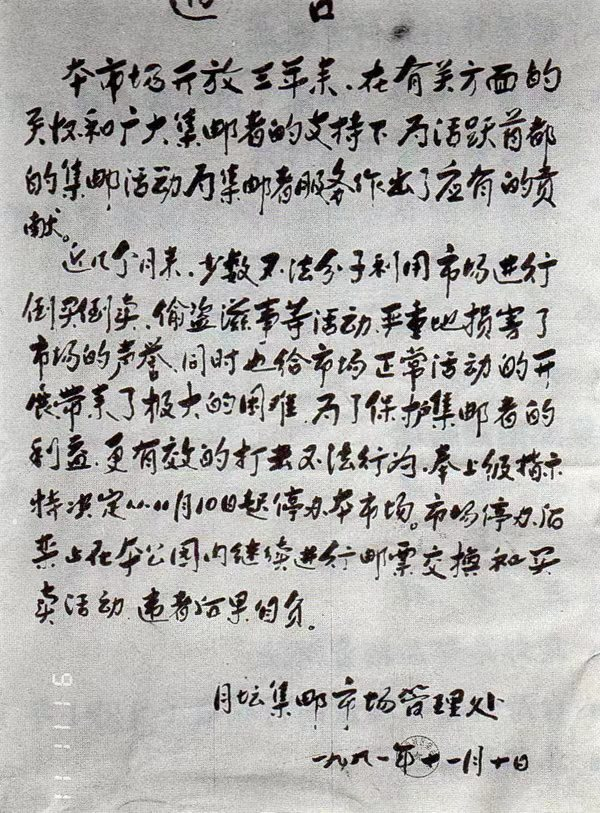 通告
本市场开放三年来、在有关方面的
关怀和广大集邮者的支持下 为活跃首都
的集邮活动为集邮者服务作出了应有的贡
献。
近几个月来、少数不法分子利用市场进行
倒买倒卖、偷盗滋事等活动、严重地损害了
市场的声誉、同时也给市场正常活动的开
展带来了极大的困难、为了保护集邮者的
利益、更有效的打击不法行为、奉上级指示
特决定从11月10日起停办本市场。市场停办后
禁止在本公园内继续进行邮票交换和买
卖活动、违者后果自负。
月坛集邮市场管理处
一九九一年十一月十日